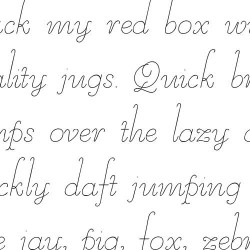 ck my red box w
lity jugs. Quick br
ps over the lazy
ckly daft jumping
e jay, pig, fox, zebr